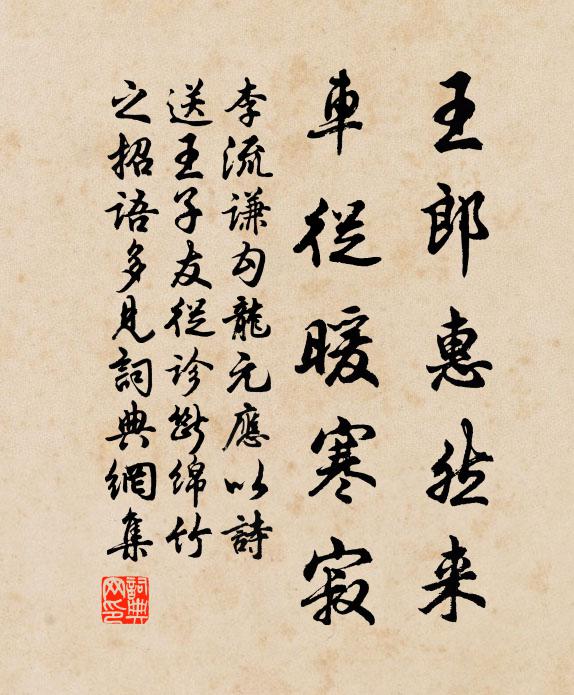 王郎惠然来
車從暖寒寂
李流謙勾龍元應以詩
送王子友從診斷綿竹
之招語多見詞典網集
詞典网印